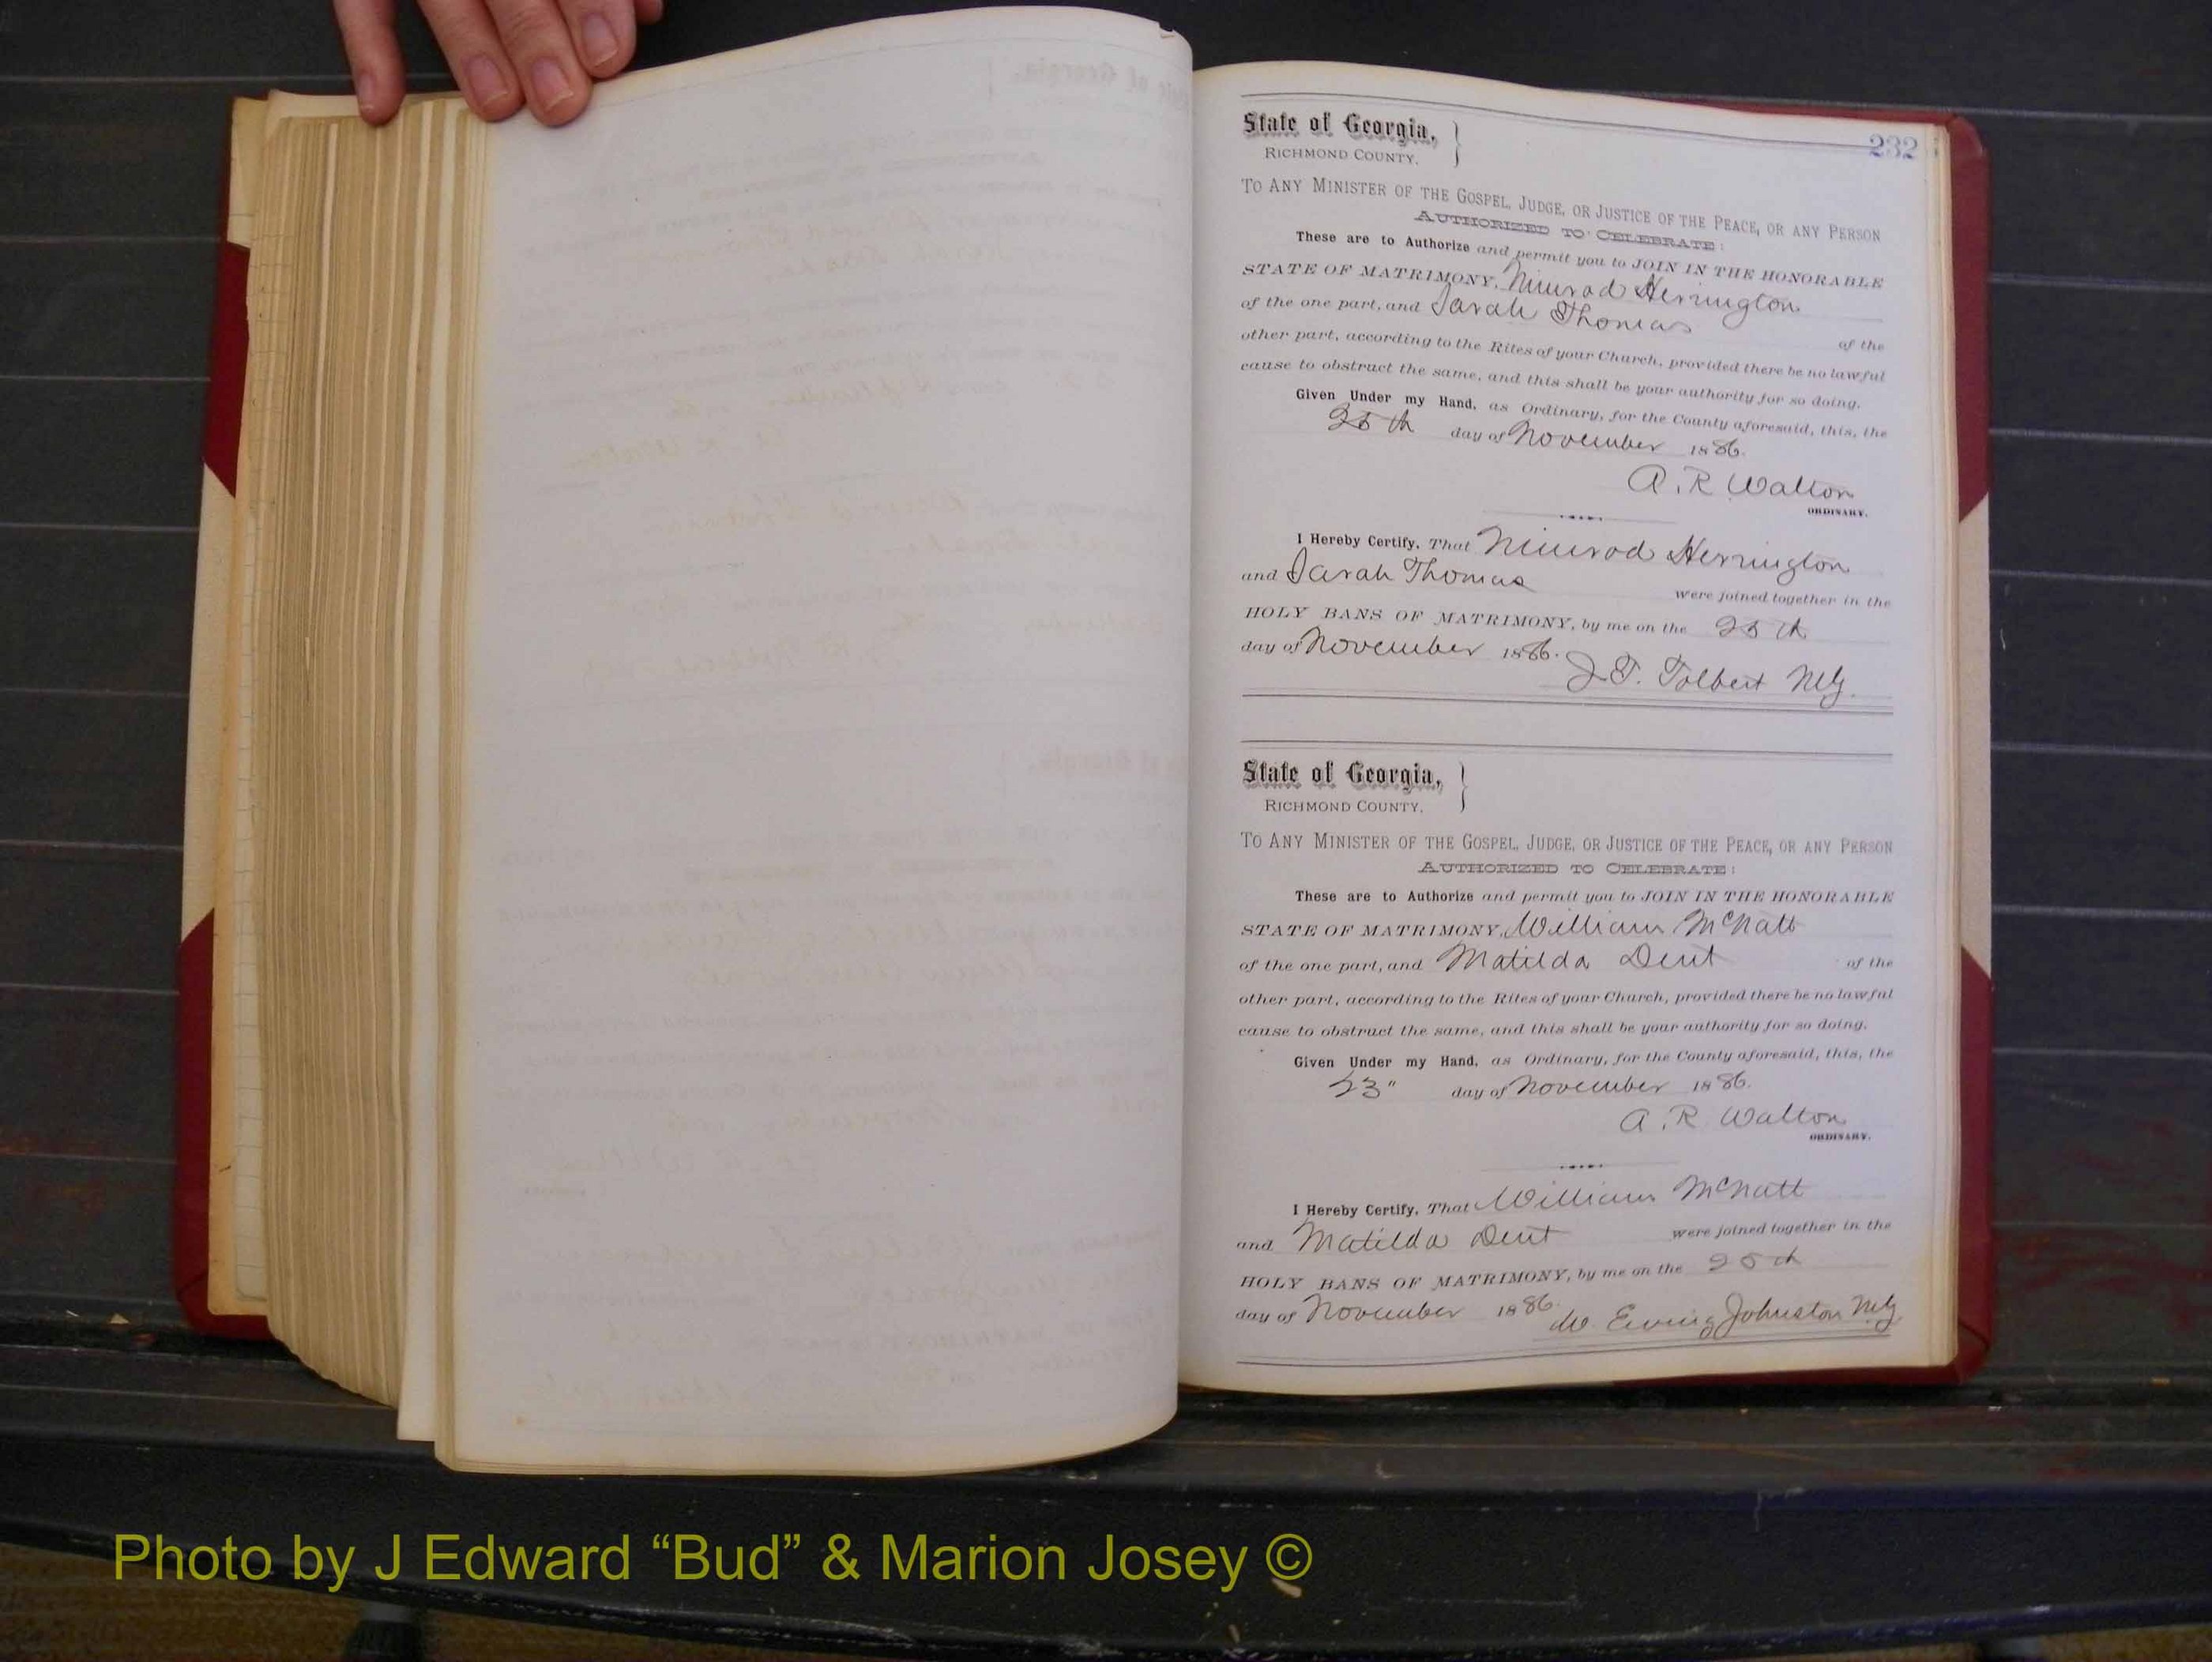 232
State of Georgia, }
RICHMOND COUNTY.
TO ANY MINISTER OF THE GOSPEL, JUDGE, OR JUSTICE OF THE PEACE, OR ANY PERSON
AUTHORIZED TO CELEBRATE:
These are to Authorize and permit you to JOIN IN THE HONORABLE
STATE OF MATRIMONY, Nimrod Herrington
of the one part, and Sarah Thomas of the
other part, according to the Rites of your Church, provided there be no lawful
cause to obstruct the same, and this shall be your authority for so doing.
Given Under my Hand, as Ordinary, for the County aforesaid, this, the
25th day of November 1886.
A. R Walton
ORDINARY.
I Hereby Certify, That Nimrod Herrington
and Sarah Thomas were joined together in the
HOLY BANS OF MATRIMONY, by me on the 25th
day of November 1886.
J. T. Tolbert MG.
State of Georgia, }
RICHMOND COUNTY.
TO ANY MINISTER OF THE GOSPEL, JUDGE, OR JUSTICE OF THE PEACE, OR ANY PERSON
AUTHORIZED TO CELEBRATE:
These are to Authorize and permit you to JOIN IN THE HONORABLE
STATE OF MATRIMONY, William McNatt
of the one part, and Matilda Dent of the
other part, according to the Rites of your Church, provided there be no lawful
cause to obstruct the same, and this shall be your authority for so doing.
Given Under my Hand, as Ordinary, for the County aforesaid, this, the
23" day of November 1886.
A. R Walton
ORDINARY.
I Hereby Certify, That William McNatt
and Matilda Dent were joined together in the
HOLY BANS OF MATRIMONY, by me on the 25th
day of November 1886.
W. Ewing Johnston MG
Photo by J Edward “Bud” & Marion Josey ©